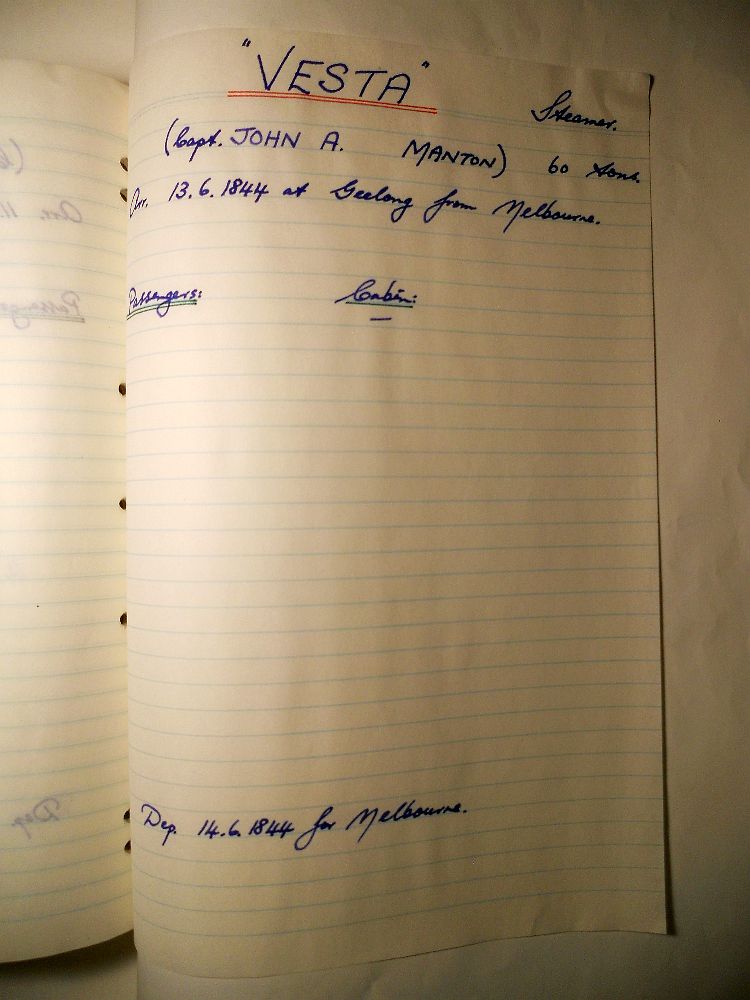 "VESTA"
Steamer.
(Capt. JOHN A. MANTON) 60 tons.
Arr. 13.6.1844 at Geelong from Melbourne.
Passengers: Cabin:
—
Dep. 14.6.1844 for Melbourne.